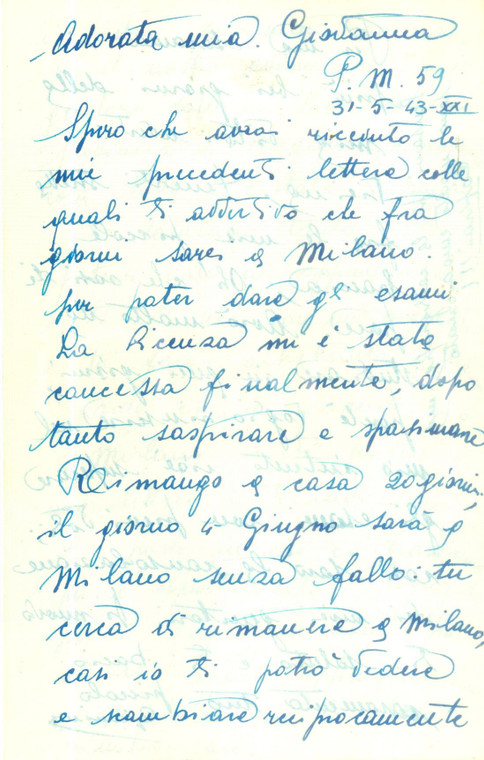 Adorata mia. Giovanna
P. M. 59
31-5-43-XXI
Spero che avrai ricevuto le
mie precedenti lettera colle
quali ti avvertivo che fra
giorni sarei a Milano.
per poter dare gl esami
La licenza mi è stata
concessa finalmente, dopo
tanto sospirare e spasimare
Rimango a casa 20 giorni,
il giorno 4 Giugno sarò a
Milano senza fallo: tu
cerca di rimanere a Milano,
così io ti potrò vedere
e scambiare reciprocamente